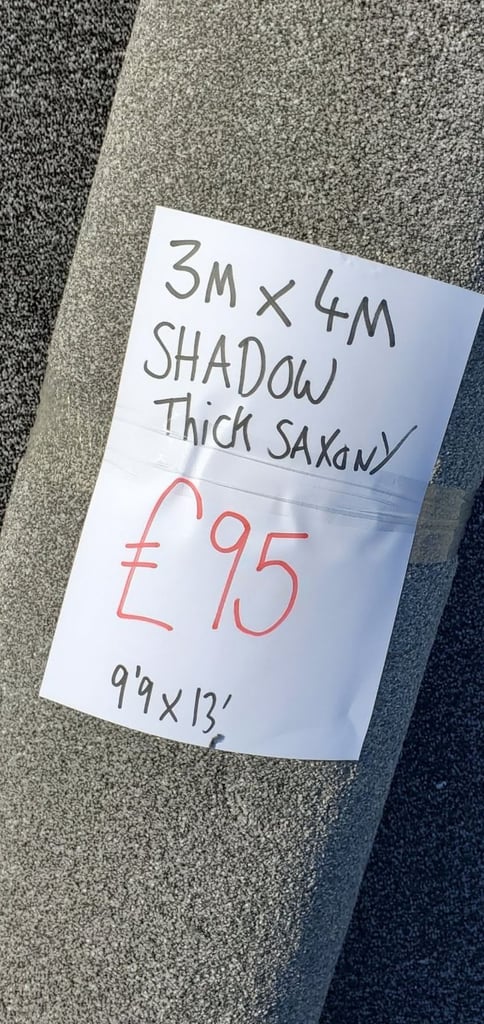 3M x 4M
SHADOW
Thick SAXONY
£95
9'9 x 13'